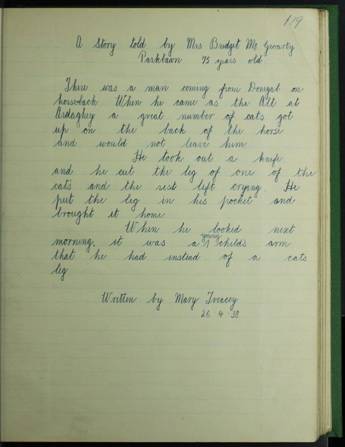 119
A Story told by Mrs Bridget Mc Grearty
Parkbawn 75 years old
There was a man coming from Donegal on
horseback When he came as the Alt at
Ardaghey a great number of cats got
up on the back of the horse
and would not leave him
He took out a knife
and he cut the leg of one of the
cats and the rest left crying. He
put the leg in his pocket and
brought it home
When he looked next
morning, it was a young childs arm
that he had instead of a cats
leg
Written by Mary Treacey
26. 4. 38